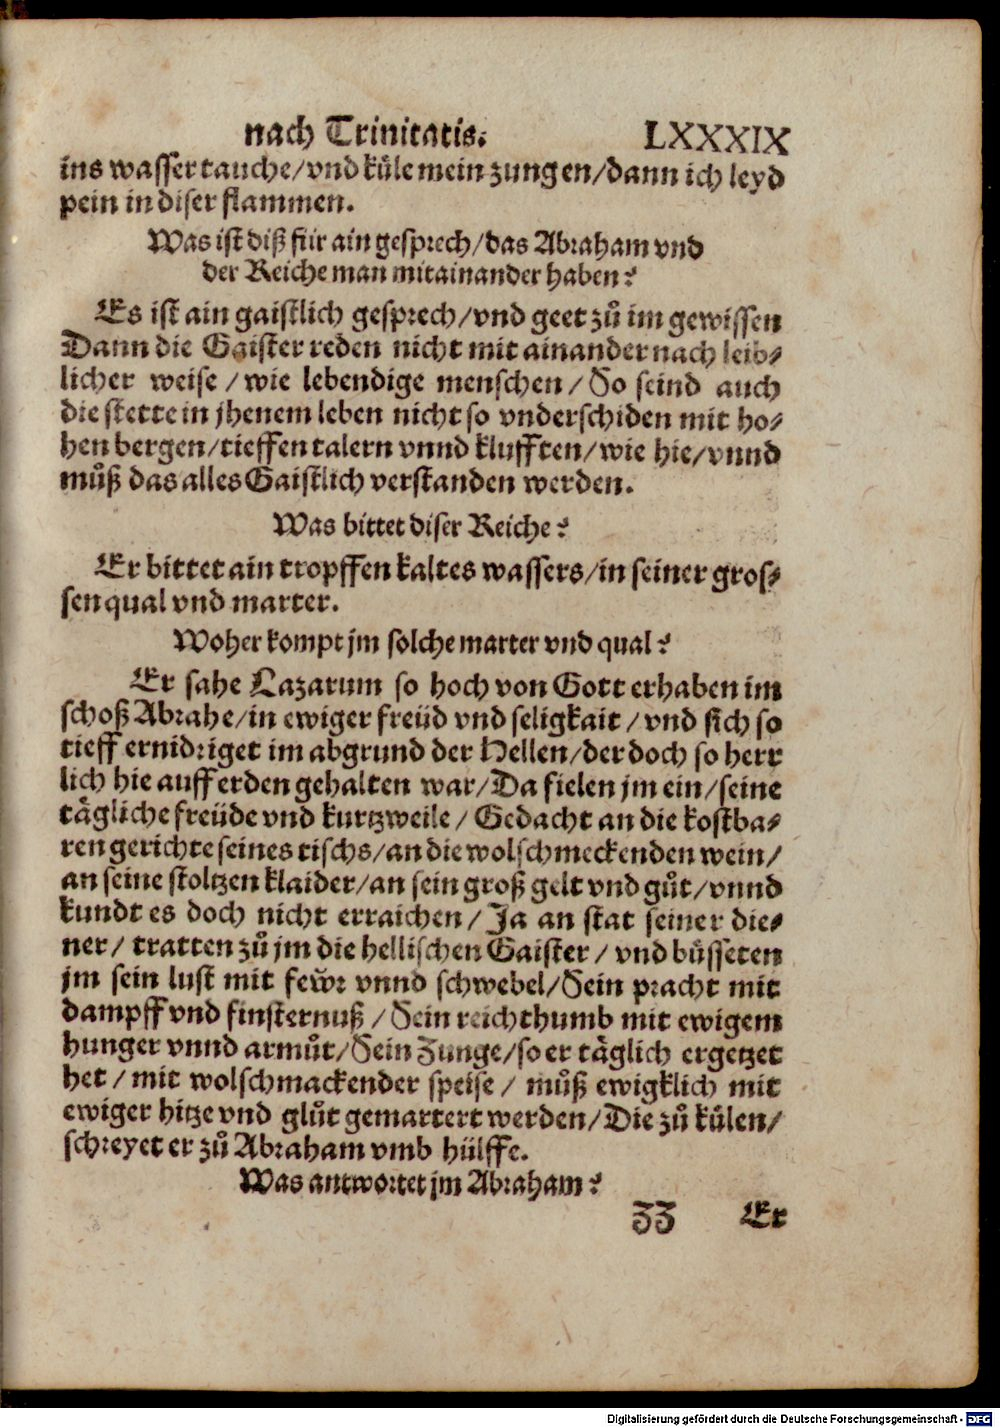 nach Trinitatis. LXXXIX
ins wasser tauche/vnd kůle mein zungen/dann ich leyd
pein in diser flammen.
Was ist diß für ain gesprech/das Abraham vnd
der Reiche man mitainander haben?
Es ist ain gaistlich gesprech/vnd geet zů im gewissen
Dann die Gaister reden nicht mit ainander nach leib-
licher weise/wie lebendige menschen/So seind auch
die stette in jhenem leben nicht so vnderschiden mit ho-
hen bergen/tieffen talern vnnd klufften/wie hie/vnnd
můß das alles Gaistlich verstanden werden.
Was bittet diser Reiche?
Er bittet ain tropffen kaltes wassers/in seiner gros-
sen qual vnd marter.
Woher kompt jm solche marter vnd qual?
Er sahe Lazarum so hoch von Gott erhaben im
schoß Abrahe/in ewiger freüd vnd seligkait/vnd sich so
tieff ernidriget im abgrund der Hellen/der doch so herr
lich hie auff erden gehalten war/Da fielen jm ein/seine
tägliche freüde vnd kurtzweile/Gedacht an die kostba-
ren gerichte seines tischs/an die wolschmeckenden wein/
an seine stoltzen klaider/an sein groß gelt vnd gůt/vnnd
kundt es doch nicht erraichen/Ja an stat seiner die-
ner/tratten zů jm die hellischen Gaister/vnd bůsseten
jm sein lust mit fewr vnnd schwebel/Sein pracht mit
dampff vnd finsternuß/Sein reichthumb mit ewigem
hunger vnnd armůt/Sein Zunge/so er täglich ergetzet
het/mit wolschmackender speise/můß ewigklich mit
ewiger hitze vnd glůt gemartert werden/Die zů kůlen/
schreyet er zů Abraham vmb hülffe.
Was antwortet jm Abraham?
ZZ Er
Digitalisierung gefördert durch die Deutsche Forschungsgemeinschaft - DFG